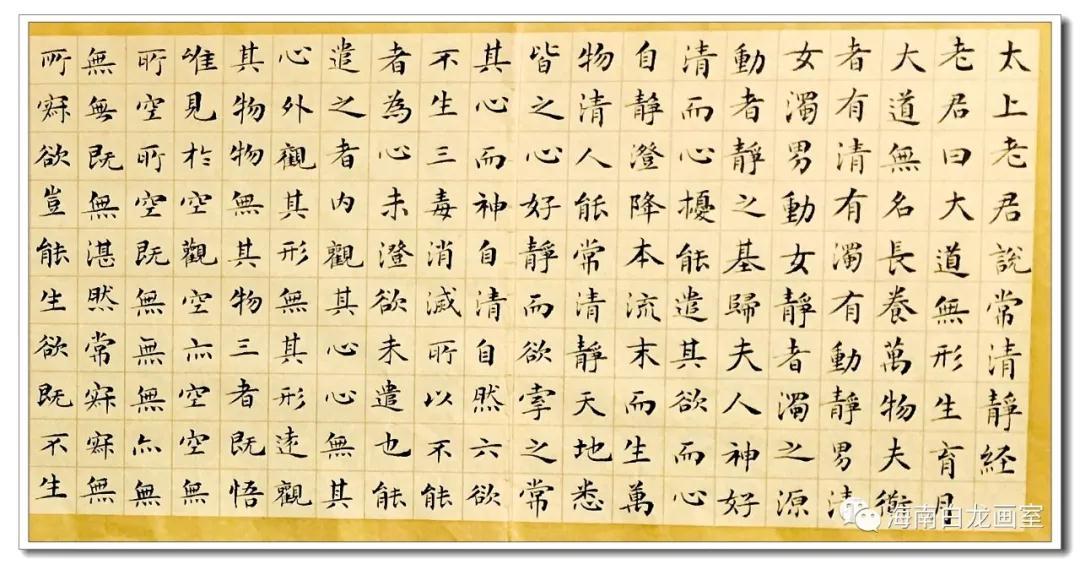 太上老君說常清靜経
老君曰大道無形生育月
大道無名長養萬物夫
者有清有濁有動靜男清
女濁男動女靜者濁之源
動者靜之基歸夫人神好
清而心擾能遣其欲而心
自靜澄降本流末而生萬
物清人能常清靜天地悉
皆之心好靜而欲牽之常
其心而神自清自然六欲
不生三毒消滅所以不能
者為心未澄欲未遣也能
遣之者內觀其心心無其
心外觀其形無其形遠觀
其物物無其物三者既悟
唯見於空觀空亦空空無
所空所空既無無無亦無
無無既無湛然常寂寂無
所寂欲豈能生欲既不生
海南白龙画室